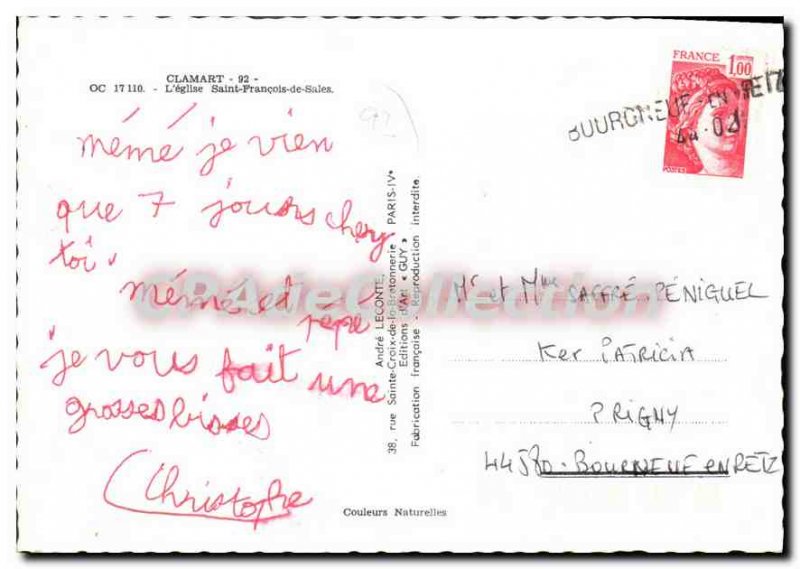 CLAMART - 92 -
OC 17 110. - L'église Saint-François-de-Sales.
mémé je vien
que 7 jouors chey
toi.
mémé et pépé
je vous fait une
grosses bisses
Christophe
André LECONTE,
38, rue Sainte-Croix-de-la-Bretonnerie - PARIS-IVe
Editions d'Art « GUY »
Fabrication française - Reproduction interdite.
Couleurs Naturelles
FRANCE
1,00
POSTES
BOURGNEUF-EN-RETZ
44-021
Mr et Mme SAFFRÉ-PÉNIGUEL
Ker PATRICIA
PRIGNY
44580-BOURNEUF en RETZ
CPAdeCollection